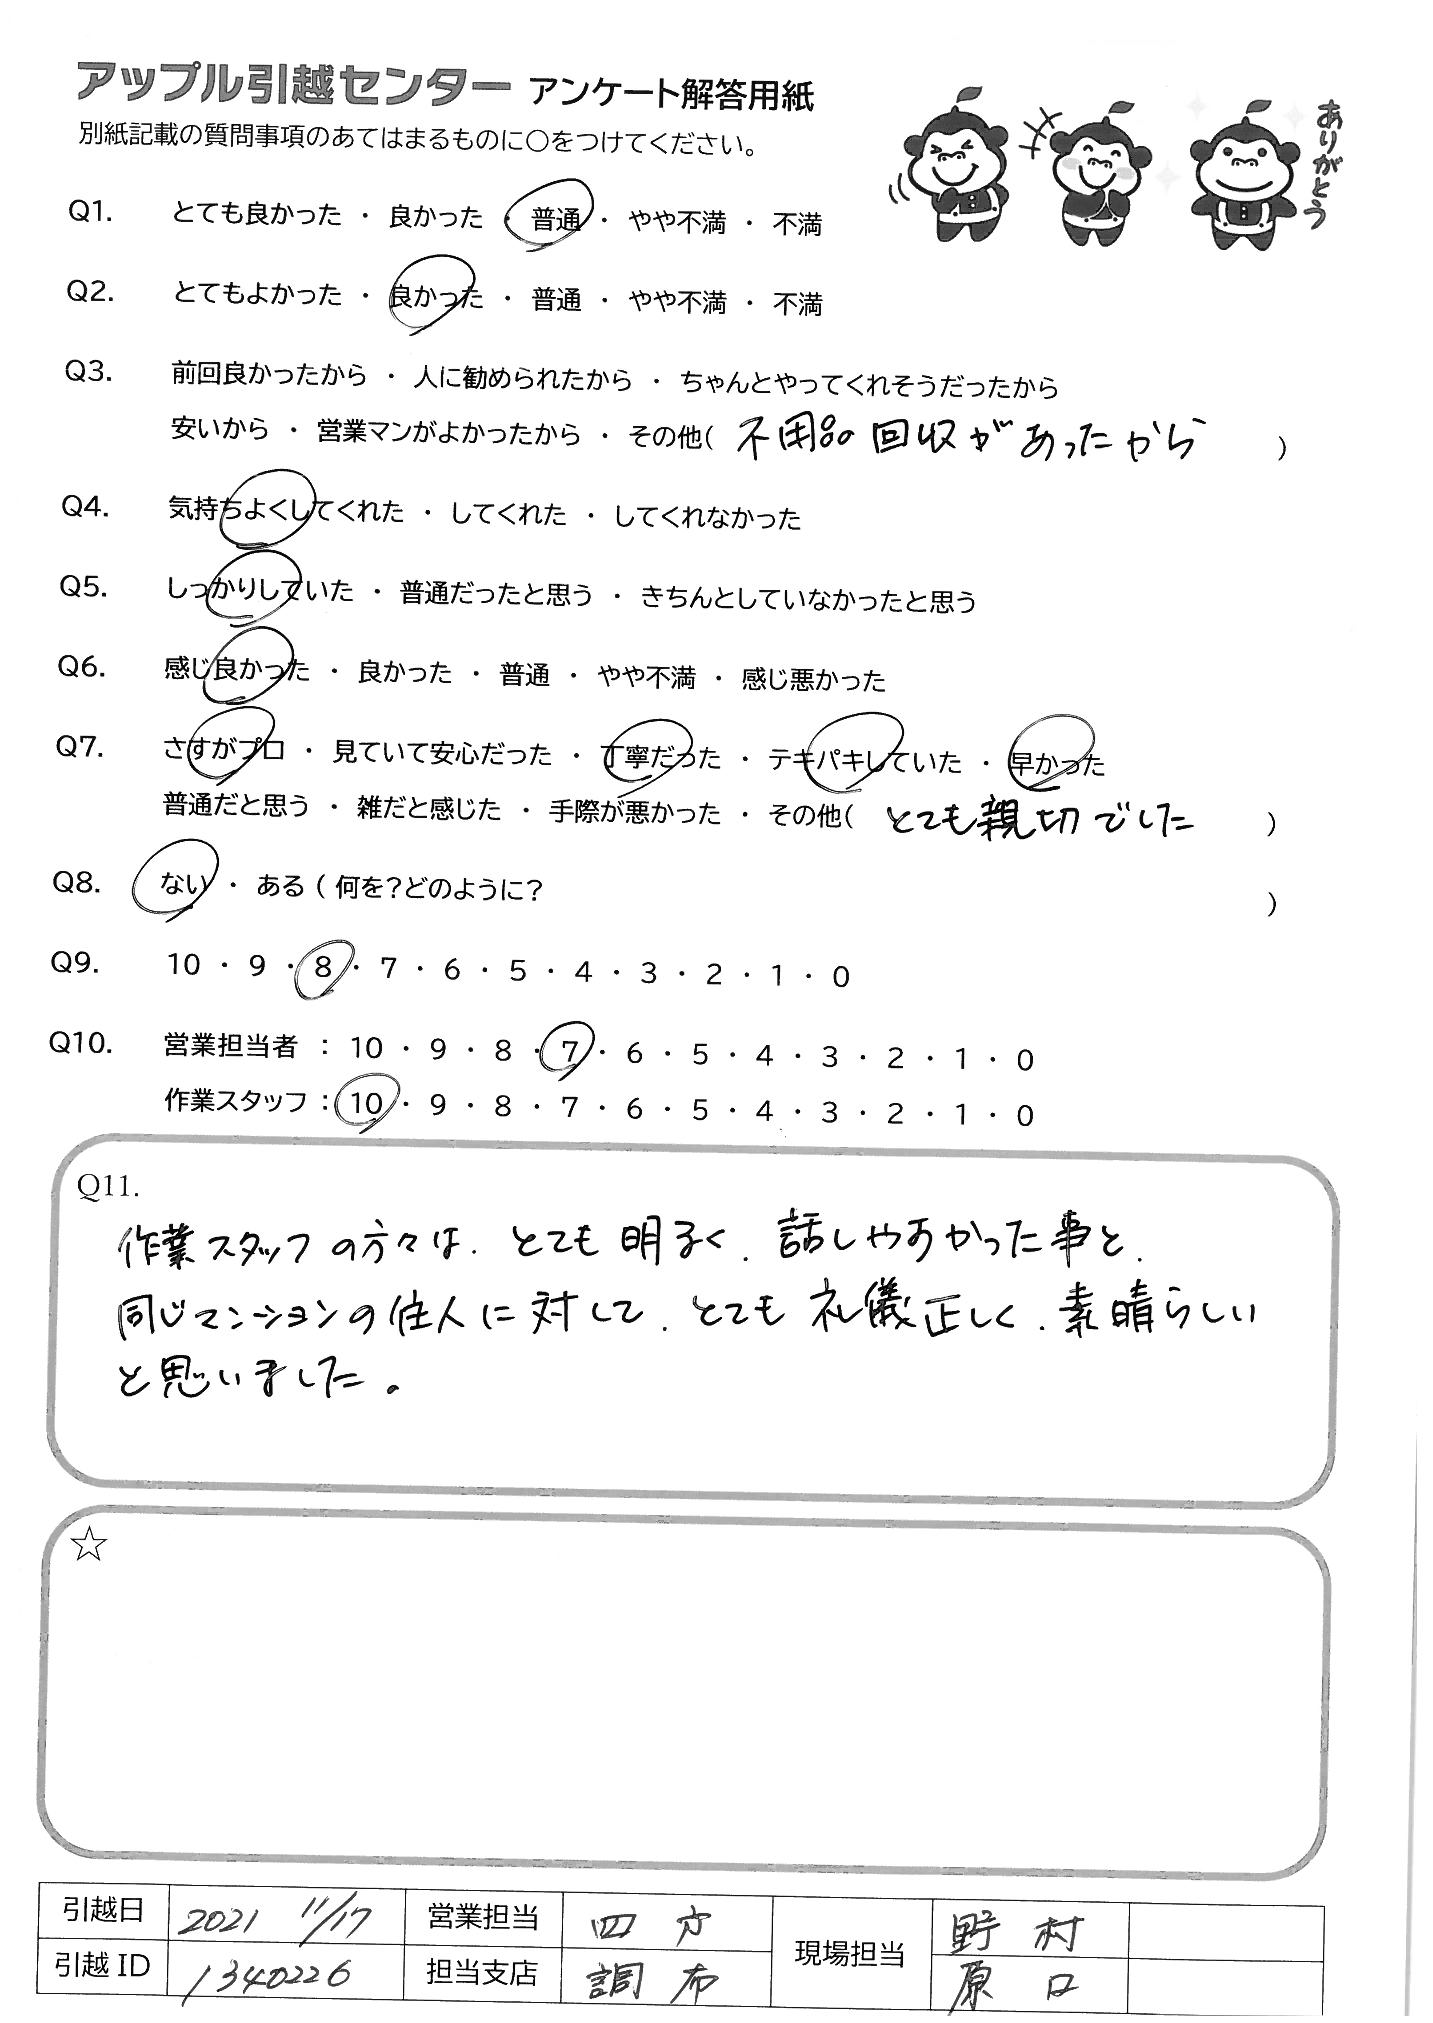 アップル引越センター アンケート解答用紙
別紙記載の質問事項のあてはまるものに○をつけてください。
ありがとう
Q1. とても良かった ・ 良かった ・ 普通 ・ やや不満 ・ 不満
Q2. とてもよかった ・ 良かった ・ 普通 ・ やや不満 ・ 不満
Q3. 前回良かったから ・ 人に勧められたから ・ ちゃんとやってくれそうだったから
安いから ・ 営業マンがよかったから ・ その他( 不用品の回収があったから )
Q4. 気持ちよくしてくれた ・ してくれた ・ してくれなかった
Q5. しっかりしていた ・ 普通だったと思う ・ きちんとしていなかったと思う
Q6. 感じ良かった ・ 良かった ・ 普通 ・ やや不満 ・ 感じ悪かった
Q7. さすがプロ ・ 見ていて安心だった ・ 丁寧だった ・ テキパキしていた ・ 早かった
普通だと思う ・ 雑だと感じた ・ 手際が悪かった ・ その他( とても親切でした )
Q8. ない ・ ある ( 何を?どのように? )
Q9. 10 ・ 9 ・ 8 ・ 7 ・ 6 ・ 5 ・ 4 ・ 3 ・ 2 ・ 1 ・ 0
Q10. 営業担当者 : 10 ・ 9 ・ 8 ・ 7 ・ 6 ・ 5 ・ 4 ・ 3 ・ 2 ・ 1 ・ 0
作業スタッフ : 10 ・ 9 ・ 8 ・ 7 ・ 6 ・ 5 ・ 4 ・ 3 ・ 2 ・ 1 ・ 0
Q11.
作業スタッフの方々は、とても明るく、話しやすかった事と、
同じマンションの住人に対して、とても礼儀正しく、素晴らしい
と思いました。
☆
引越日 2021 11/17 営業担当 四方 現場担当 野村
引越ID 1340226 担当支店 調布 原口